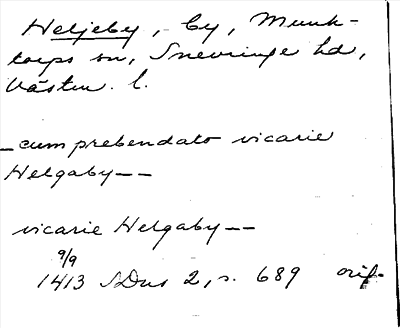 Heljeby, by, Munk-
torps sn, Snevringe hd,
Västm. l.
_ cum prebendato vicarie
Helgaby--
vicarie Helgaby--
9/9
1413 SDns 2, s. 689 orig.